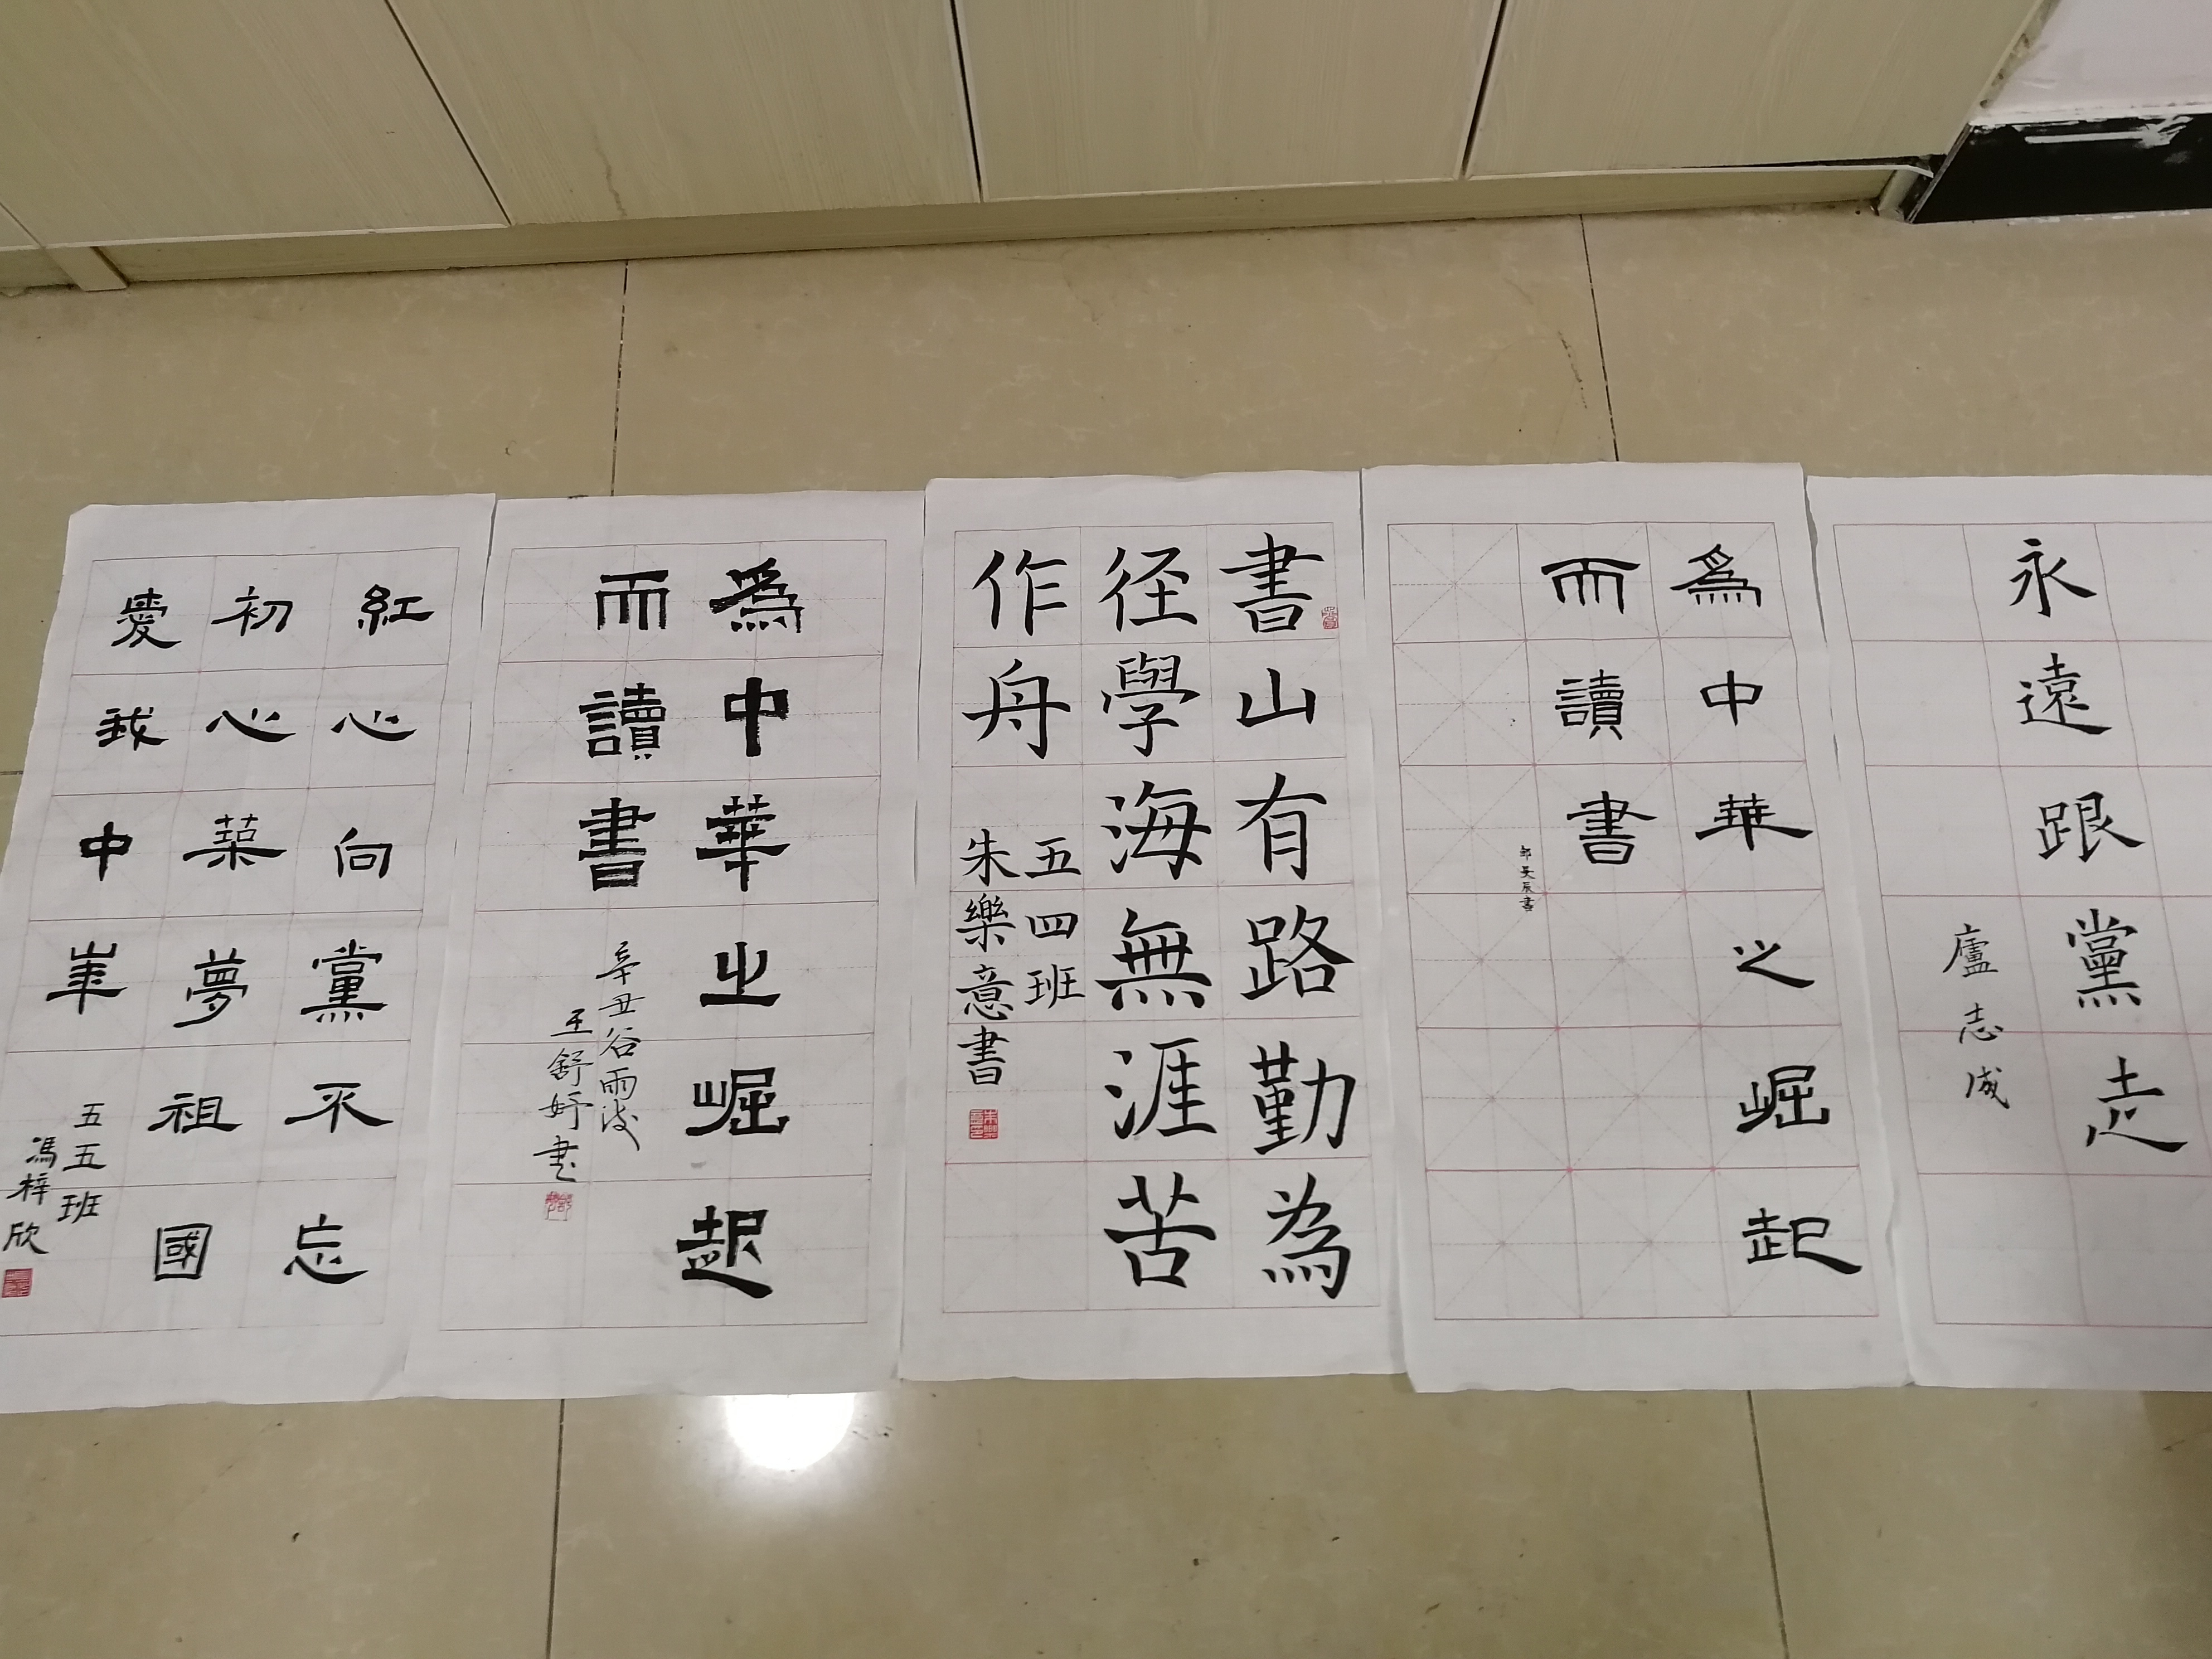 永遠跟黨走
廬志成
為中華之崛起
而讀書
書山有路勤為
径學海無涯苦
作舟
五四班
朱樂意書
為中華之崛起
而讀書
辛丑谷雨後
王舒妤書
紅心向黨不忘
初心築夢祖國
愛我中華
五五班
馮梓欣